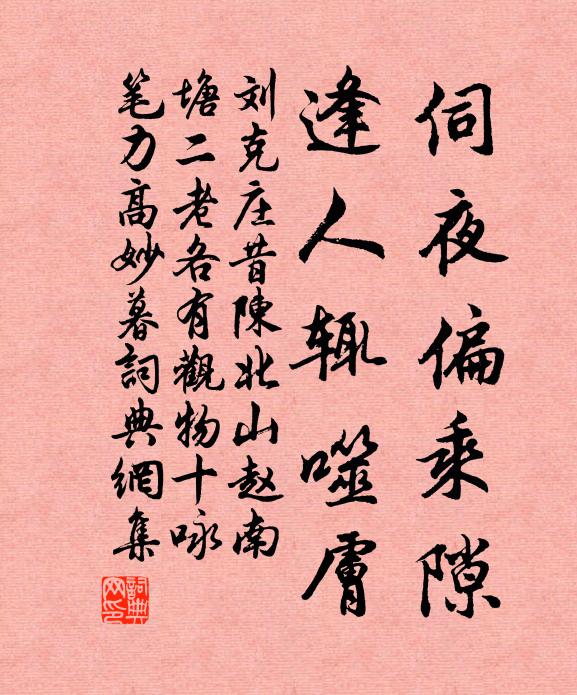 伺夜偏乘隙
逢人辄噬膚
刘克庄昔陳北山赵南
塘二老各有觀物十咏
笔力高妙暮詞典網集
詞典網印